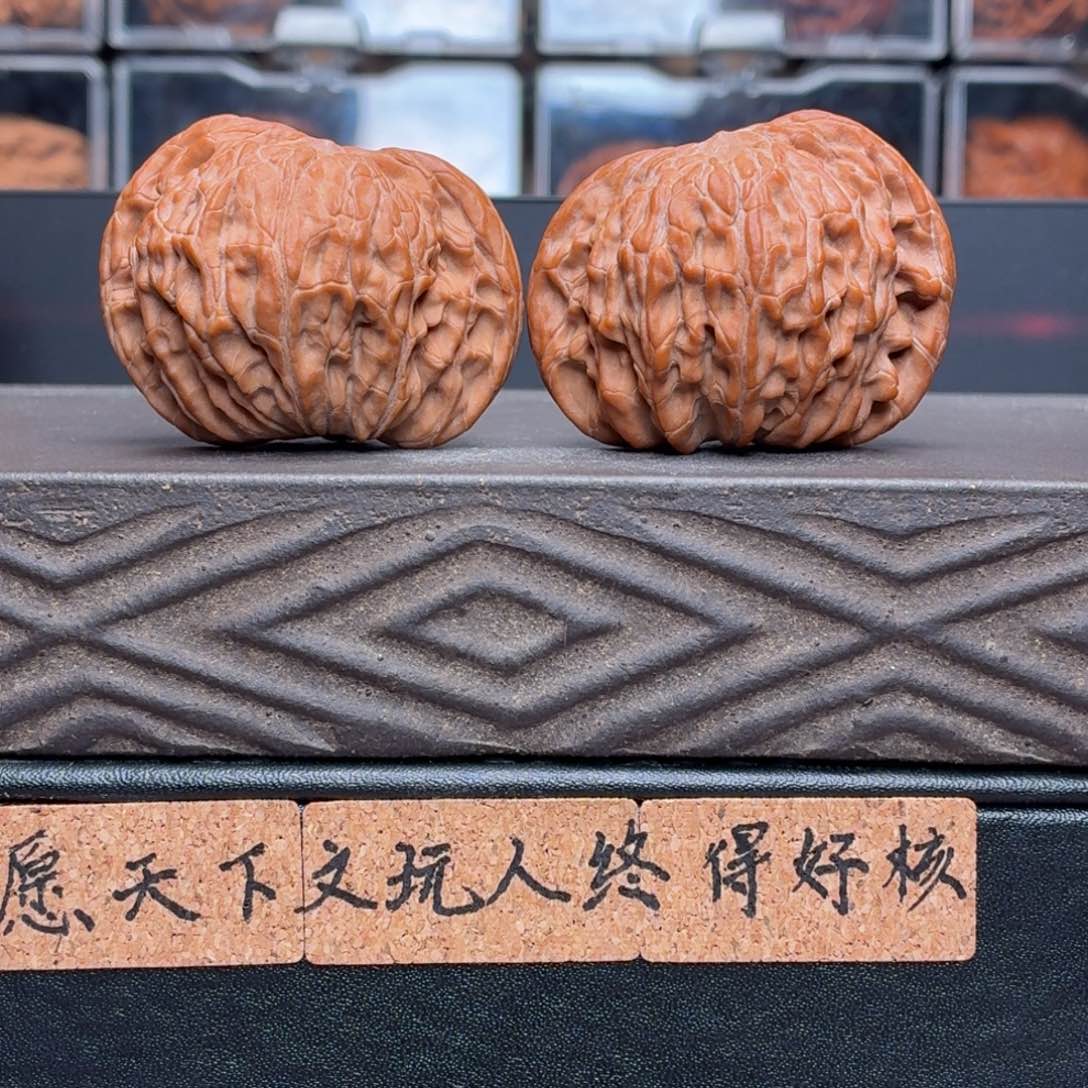 愿天下文玩人终得好核